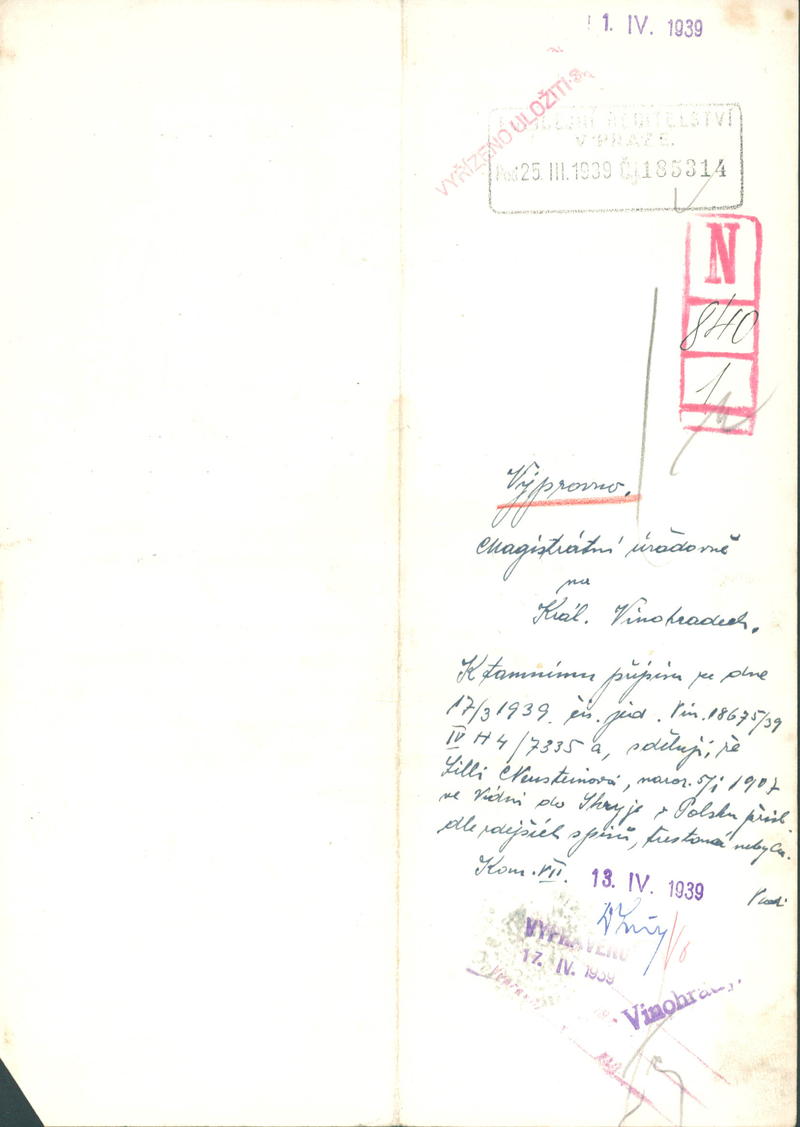 1. IV. 1939
VYŘÍZENO ULOŽITI
ŘEDITELSTVÍ
V PRAZE.
Pod 25. III. 1939 Čj 185314
N
840
1
Výpravno.
Magistrátní úřadovně
na
Král. Vinohradech.
K tamnímu přípisu ze dne
17/3 1939. čís. jed. Vin. 18675/39
IV H 4/7335 a, sděluji, že
Lilli Neusteinová, naroz. 5/1 1907
ve Vídni do Stryje v Polsku přísl.
dle zdejších spisů, trestaná nebyla.
Kom. VII.
13. IV. 1939
VYPRAVENO
17. IV. 1939
Vinohrady.